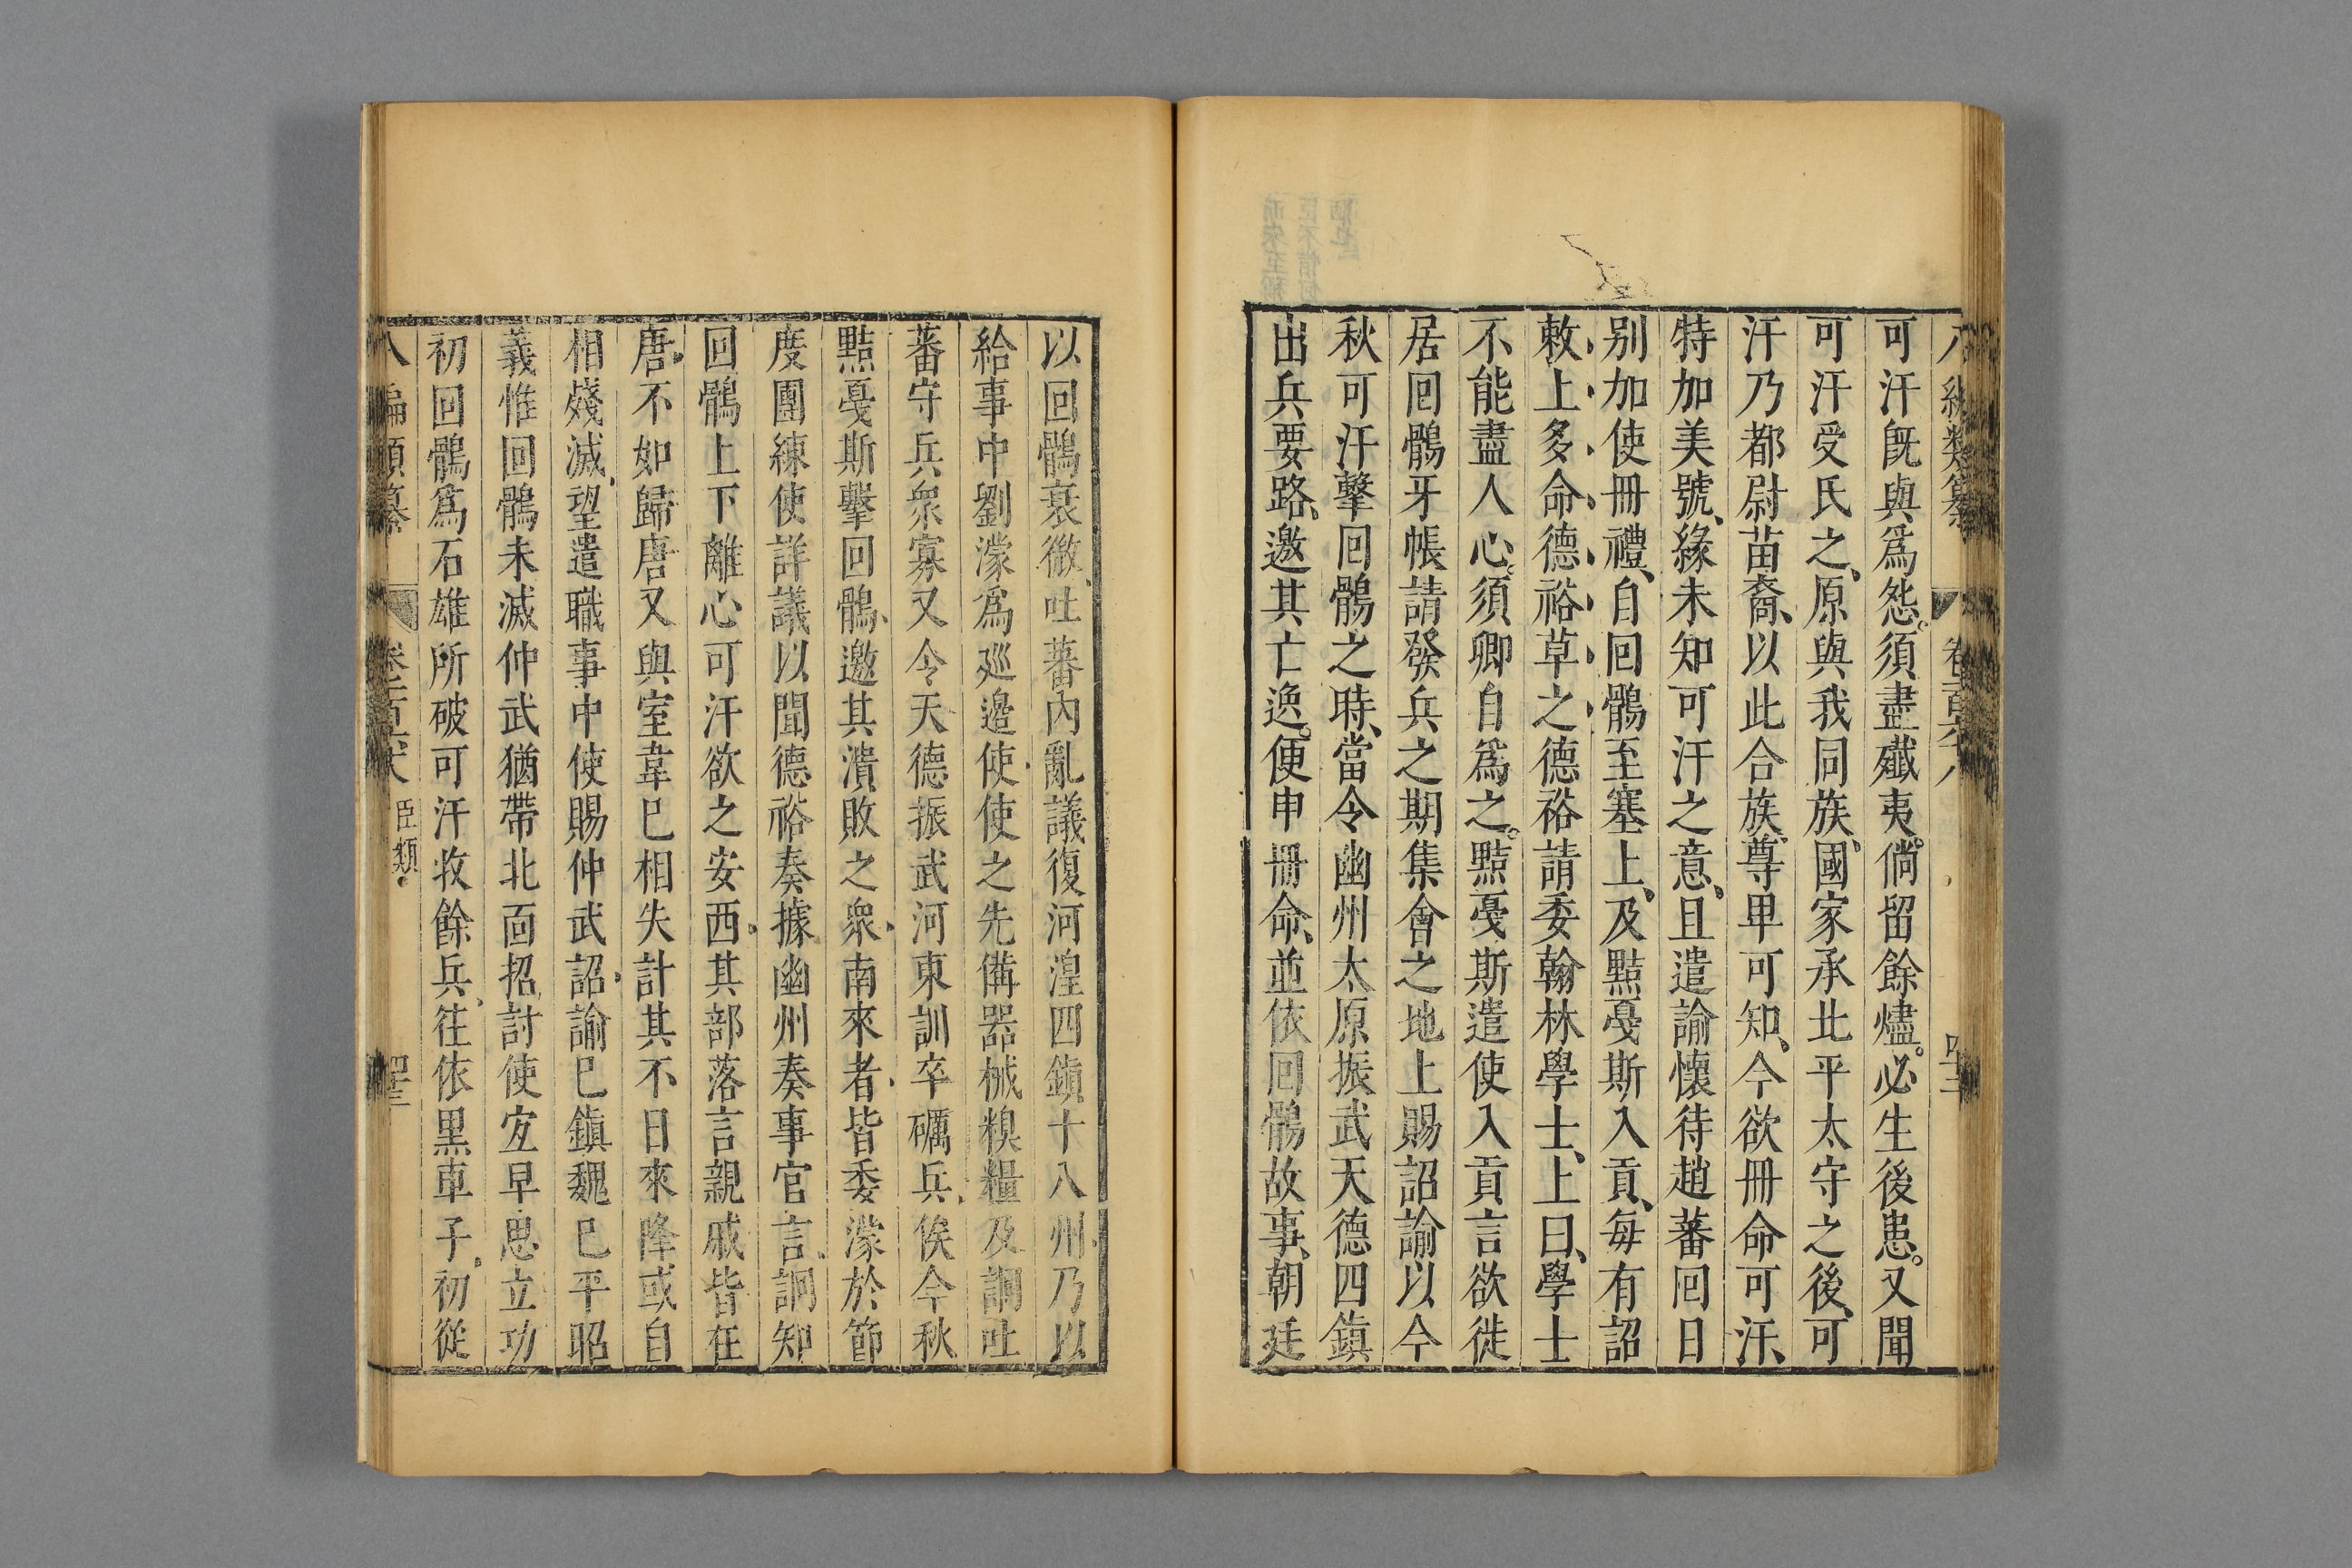 可汗旣與爲怨須盡殲夷倘留餘燼必生後患又聞
可汗受氏之原與我同族國家承北平太守之後可
汗乃都尉苗裔以此合族尊卑可知今欲冊命可汗
特加美號緣未知可汗之意且遣諭懷待趙蕃回日
別加使冊禮自回鶻至塞上及黠戛斯入貢每有詔
敕上多命德裕草之德裕請委翰林學士上曰學士
不能盡人心須卿自爲之黠戛斯遣使入貢言欲徙
居回鶻牙帳請發兵之期集會之地上賜詔諭以今
秋可汗擊回鶻之時當令幽州太原振武天德四鎮
出兵要路邀其亡逸便申冊命並依回鶻故事朝廷
以回鶻衰微吐蕃內亂議復河湟四鎮十八州乃以
給事中劉濛爲巡邊使使之先備器械糗糧及詗吐
蕃守兵衆寡又令天德振武河東訓卒礪兵俟今秋
黠戛斯擊回鶻邀其潰敗之衆南來者皆委濛於節
度團練使詳議以聞德裕奏據幽州奏事官言詗知
回鶻上下離心可汗欲之安西其部落言親戚皆在
唐不如歸唐又與室韋已相失計其不日來降或自
相殘滅望遣職事中使賜仲武詔諭巳鎮魏巳平昭
義惟回鶻未滅仲武猶帶北面招討使宜早思立功
初回鶻爲石雄所破可汗收餘兵往依黑車子初從
臣類